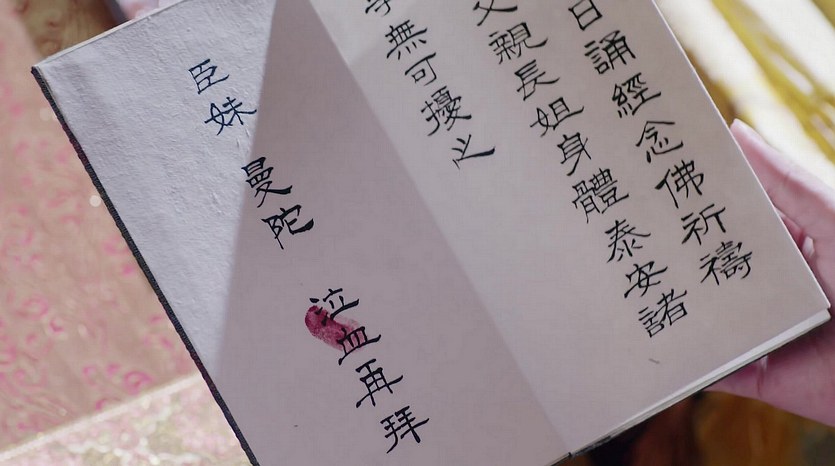 日誦經念佛祈禱
父親長姐身體泰安諸
無可擾之
臣妹 曼陀 泣血再拜